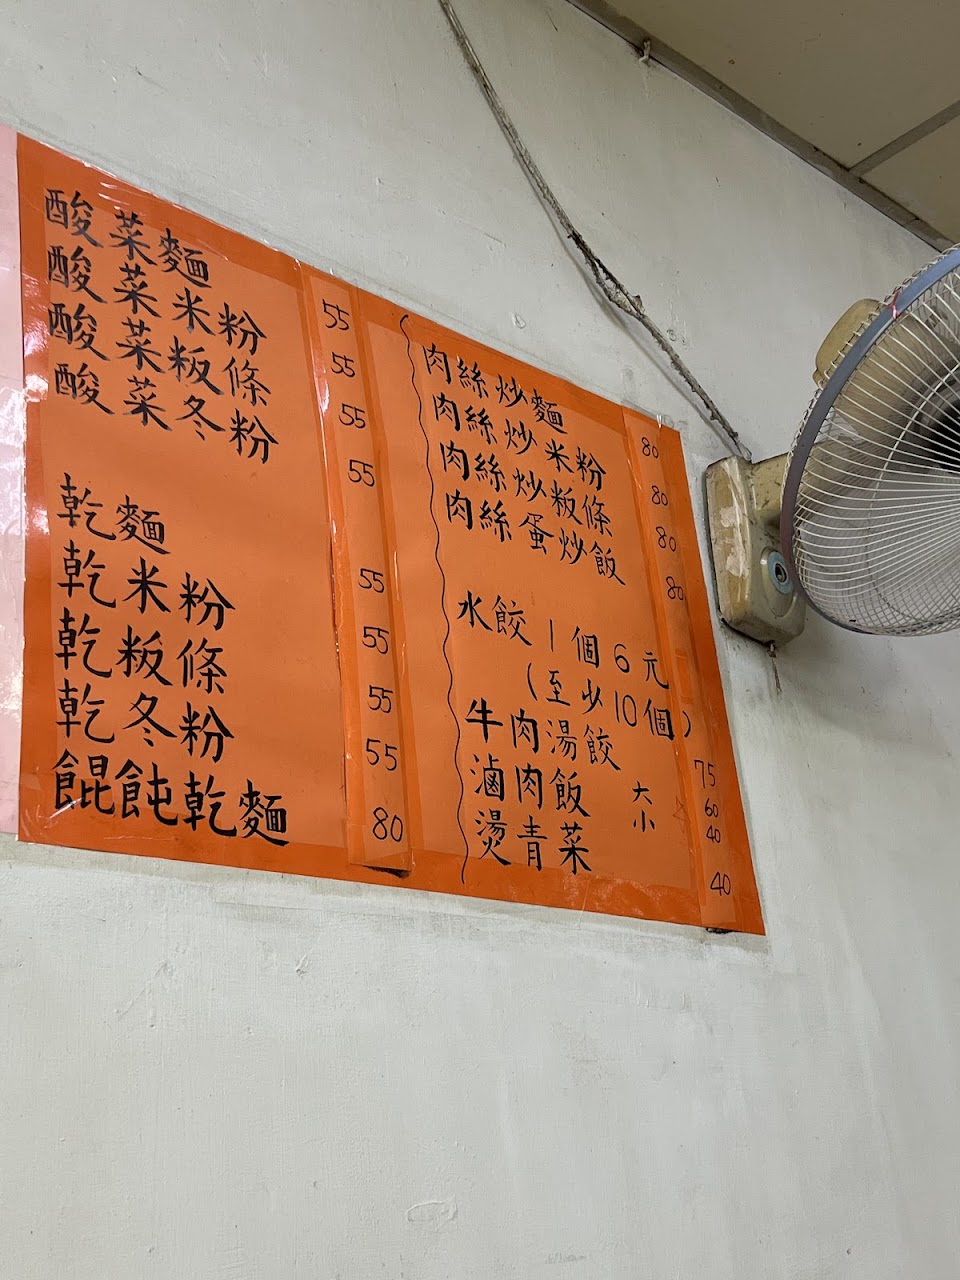 酸菜麵 55
酸菜米粉 55
酸菜粄條 55
酸菜冬粉 55
乾麵 55
乾米粉 55
乾粄條 55
乾冬粉 55
餛飩乾麵 80
肉絲炒麵 80
肉絲炒米粉 80
肉絲炒粄條 80
肉絲蛋炒飯 80
水餃1個6元
(至少10個)
牛肉湯餃 75
滷肉飯 大 60
小 40
燙青菜 40